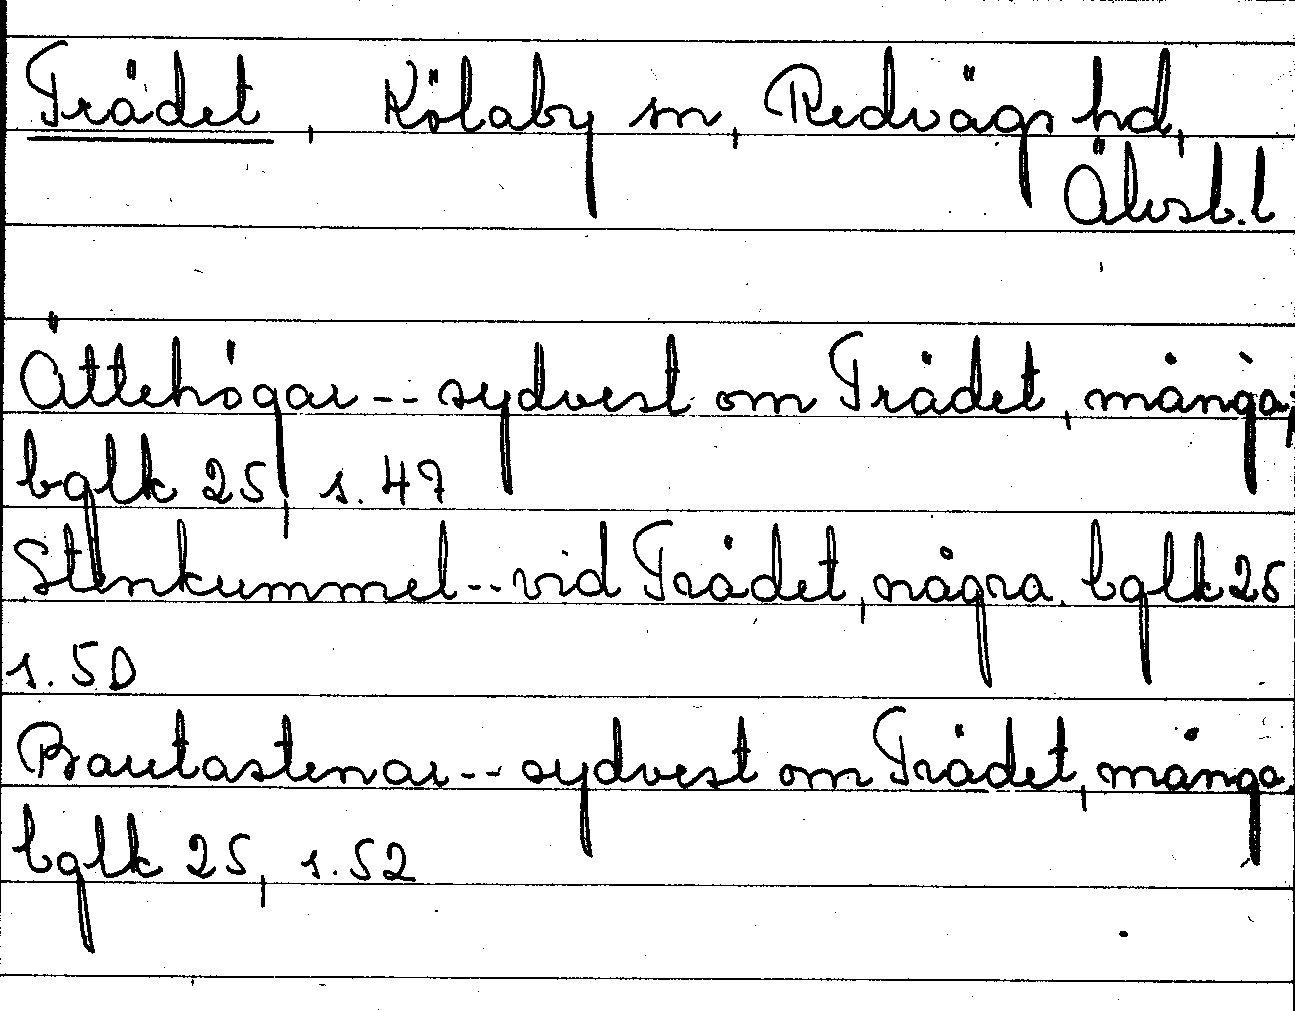 Trädet, Kölaby sn, Redvägs hd,
Älvsb.l
Ättehögar -- sydvest om Trädet, många;
bglk 25, s. 47
Stenkummel -- vid Trädet, några. bglk 25
s. 50
Bautastenar -- sydvest om Trädet, många.
bglk 25, s. 52